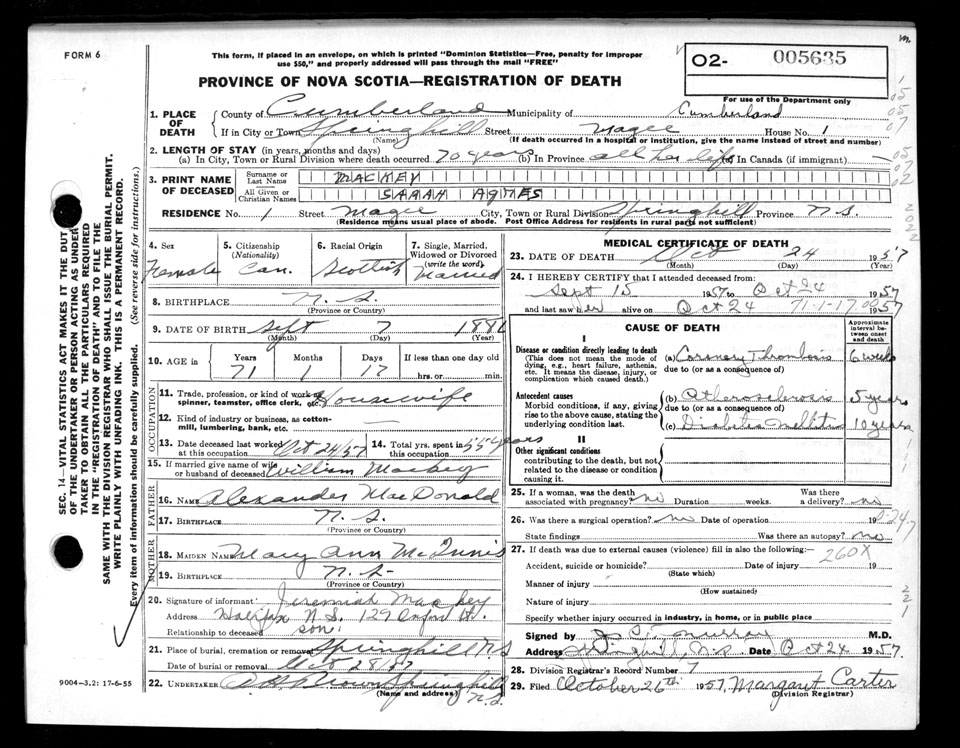 FORM 6
This form, if placed in an envelope, on which is printed "Dominion Statistics—Free, penalty for improper
use $50," and properly addressed will pass through the mail "FREE"
PROVINCE OF NOVA SCOTIA—REGISTRATION OF DEATH
O2- 005635
For use of the Department only
1. PLACE OF DEATH County of Cumberland Municipality of Cumberland
If in City or Town Springhill Street Magee House No. 1
(Name) (If death occurred in a hospital or institution, give the name instead of street and number)
2. LENGTH OF STAY (in years, months and days)
(a) In City, Town or Rural Division where death occurred 70 years (b) In Province all her life In Canada (if immigrant) —
3. PRINT NAME OF DECEASED Surname or Last Name MACKEY
All Given or Christian Names SARAH AGNES
RESIDENCE No. 1 Street Magee City, Town or Rural Division Springhill Province N.S.
(Residence means usual place of abode. Post Office Address for residents in rural parts not sufficient)
4. Sex Female
5. Citizenship (Nationality) Can.
6. Racial Origin Scottish
7. Single, Married, Widowed or Divorced (write the word) Married
8. BIRTHPLACE N. S.
(Province or Country)
9. DATE OF BIRTH Sept 7 1886
(Month) (Day) (Year)
10. AGE in Years Months Days If less than one day old
71 1 17 hrs. or min.
OCCUPATION
11. Trade, profession, or kind of work as spinner, teamster, office clerk, etc. Housewife
12. Kind of industry or business, as cotton-mill, lumbering, bank, etc. —
13. Date deceased last worked at this occupation Oct 24/57
14. Total yrs. spent in this occupation 55 years
15. If married give name of wife or husband of deceased William Mackey
FATHER
16. NAME Alexander MacDonald
17. BIRTHPLACE N. S.
(Province or Country)
MOTHER
18. MAIDEN NAME Mary Ann McInnis
19. BIRTHPLACE N. S.
(Province or Country)
20. Signature of informant: Jeremiah Mackey
Address Halifax N.S. 129 Oxford St.
Relationship to deceased son
21. Place of burial, cremation or removal Springhill N.S
Date of burial or removal Oct 28/57
22. UNDERTAKER Brown Springhill N.S.
(Name and address)
MEDICAL CERTIFICATE OF DEATH
23. DATE OF DEATH Oct 24 1957
(Month) (Day) (Year)
24. I HEREBY CERTIFY that I attended deceased from:
Sept 15 1957 to Oct 24 1957
and last saw her alive on Oct 24 1957
71-1-17
CAUSE OF DEATH
Approximate interval between onset and death
I
Disease or condition directly leading to death
(This does not mean the mode of dying, e.g., heart failure, asthenia, etc. It means the disease, injury, or complication which caused death.)
(a) Coronary Thrombosis 6 weeks
due to (or as a consequence of)
Antecedent causes
Morbid conditions, if any, giving rise to the above cause, stating the underlying condition last.
(b) Atherosclerosis 5 years
due to (or as a consequence of)
(c) Diabetes Mellitus 10 years
II
Other significant conditions
contributing to the death, but not related to the disease or condition causing it.
25. If a woman, was the death associated with pregnancy? no Duration weeks. Was there a delivery? no
26. Was there a surgical operation? no Date of operation 19
State findings Was there an autopsy? no
27. If death was due to external causes (violence) fill in also the following:—
260X
Accident, suicide or homicide? Date of injury 19
(State which)
Manner of injury
(How sustained)
Nature of injury
Specify whether injury occurred in industry, in home, or in public place
Signed by Murray M.D.
Address Springhill, N.S. Date Oct 24 1957.
28. Division Registrar's Record Number 7
29. Filed October 26th 1957 Margaret Carter
(Division Registrar)
SEC. 14—VITAL STATISTICS ACT MAKES IT THE DUTY
OF THE UNDERTAKER OR PERSON ACTING AS UNDER
TAKER TO OBTAIN ALL THE PARTICULARS REQUIRED
IN THE "REGISTRATION OF DEATH" AND TO FILE THE
SAME WITH THE DIVISION REGISTRAR WHO SHALL ISSUE THE BURIAL PERMIT.
WRITE PLAINLY WITH UNFADING INK. THIS IS A PERMANENT RECORD.
Every item of information should be carefully supplied. (See reverse side for instructions.)
9004-3.2: 17-6-55